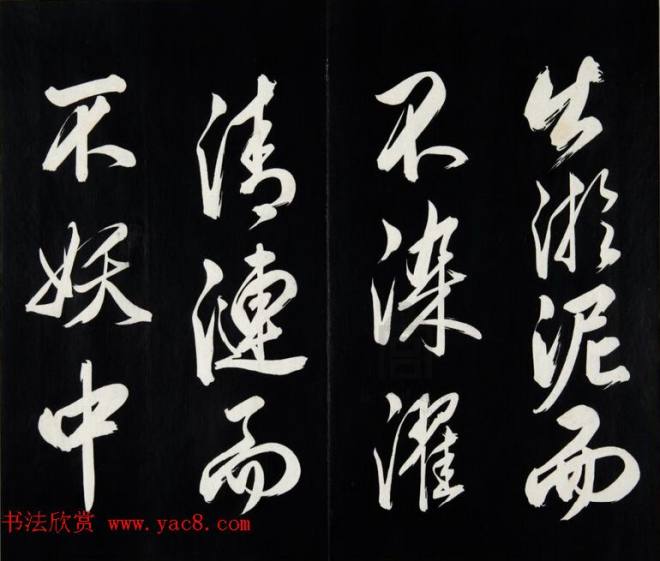 出淤泥而
不染濯
清漣而
不妖中
书法欣赏 www.yac8.com